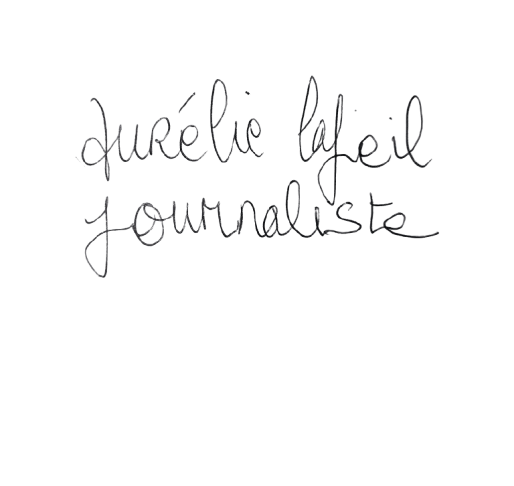 Aurélie Lafeil
Journaliste